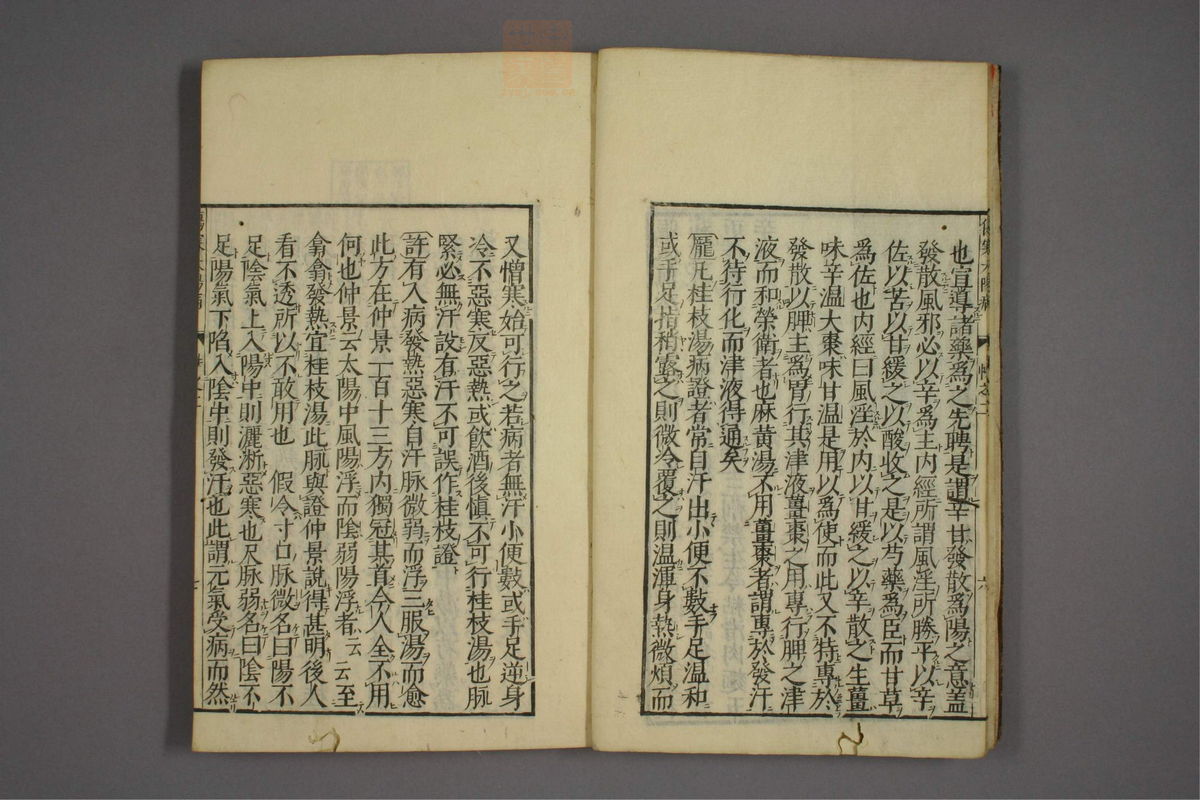 也宣導諸藥爲之先聘是謂辛甘發散爲陽之意蓋
發散風邪必以辛爲主內經所謂風淫所勝平以辛
佐以苦以甘緩之以酸收之是以芍藥爲臣而甘草
爲佐也內經曰風淫於內以甘緩之以辛散之生薑
味辛溫大棗味甘溫是用以爲使而此又不特專於
發散以脾主爲胃行其津液薑棗之用專行脾之津
液而和榮衛者也麻黃湯不用薑棗者謂專於發汗
不待行化而津液得通矣
龐元桂枝湯病證者常自汗出小便不數手足溫和
或手足指稍露之則微冷覆之則温渾身熱微煩而
又憎寒始可行之若病者無汗小便數或手足逆身
冷不惡寒反惡熱或飲酒後愼不可行桂枝湯也脉
緊必無汗設有汗不可誤作桂枝證
許有人病發熱惡寒自汗脉微弱而浮三服湯而愈
此方在仲景一百十三方內獨冠其首今人全不用
何也仲景云太陽中風陽浮而陰弱陽浮者云云至
翕翕發熱宜桂枝湯此脉與證仲景說得甚明後人
看不透所以不敢用也 假令寸口脉微名曰陽不
足陰氣上入陽中則灑淅惡寒也尺脉弱名曰陰不
足陽氣下陷入陰中則發汗也此謂元氣受病而然